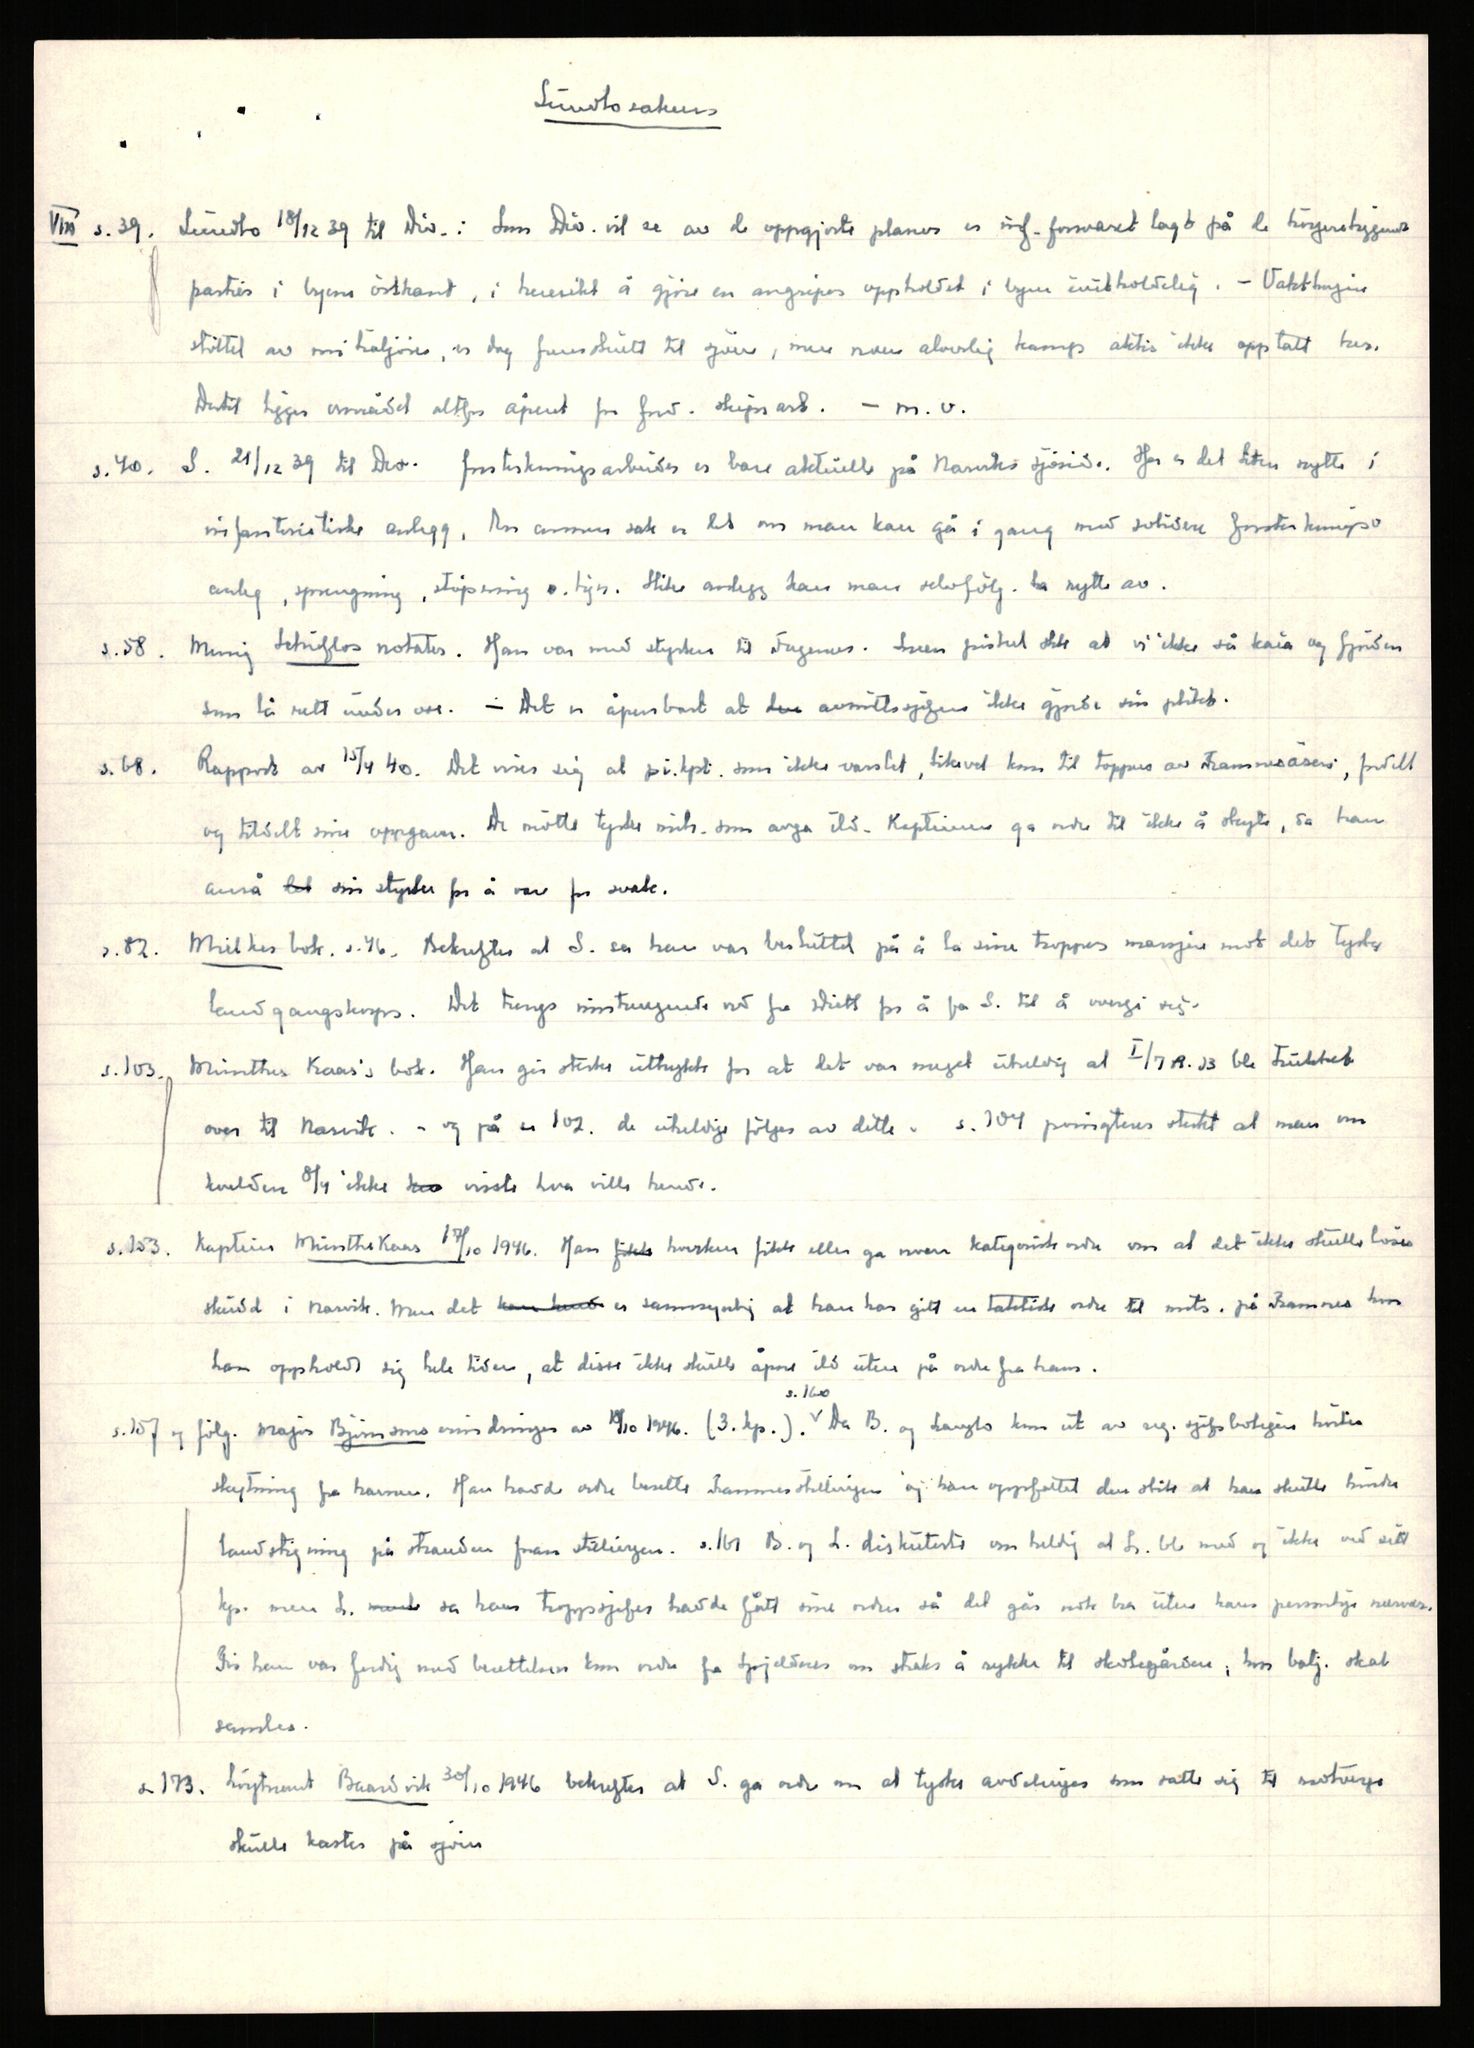 Sundlosaken
VIII s.39. Sundlo 18/12 39 til Div.: Som Div. vil se av de oppgjorte planer er inf. forsvaret lagt på de höyereliggende
partier i byens östkant, i hensikt å gjöre en angripers oppholdet i byen uutholdelig. - Vaktlinjen
stöttet av mitraljöser, er dog fremskutt til sjöen, men noen alvorlig kamp aktes ikke opptatt her.
Dertil ligger området altfor åpent for fiend. skipsart. - m.v.
s.40. S. 21/12 39 til Div. forsterkningsarbeider er bare aktuelle på Narviks sjöside. Her er det liten nytte i
infanteristiske anlegg, En annen sak er det om man kan gå i gang med solidere forsterknings
anleg, sprengning, stöpning o.lign. Slike anlegg kan man selvfölg. ha nytte av.
s.58. Menig notater. Han var med styrken til Fagernes. Sneen pisket slik at vi ikke så kaia og fjorden
som lå rett under oss. - Det er åpenbart at den avsnittssjefen ikke gjorde sin plikt.
s.68. Rapport av 15/4 40. Det viser sig at pi.kpt. som ikke varslet, likevel kom til toppen av Framnesåsen, fordelt
og tildelt sine oppgaver. De mötte tyske mits. som avga ild. Kapteinen ga ordre til ikke å skyte, da han
anså det sin styrke for å være for svak.
s.82. Mielkes bok. s.46. Bekrefter at S. sa han var besluttet på å la sine tropper marsjere mot det tyske
landgangskorps. Det trengs inntrengende ord fra Dietl for å få S. til å overgi sig.
s.103. Munthe Kaas's bok. Han gir sterke uttrykk for at det var meget uheldig at I/I.R.13 ble trukket
over til Narvik. - og på s. 102. de uheldige fölger av dette. s.104 poengteres sterkt at man om
kvelden 8/4 ikke visste hva ville hende.
s.153. Kaptein Munthe Kaas 17/10 1946. Han fikk hverken fikk eller ga noen kategorisk ordre om at det ikke skulle löses
skudd i Narvik. Men det kan hende er sannsynlig at han har gitt en taktisk ordre til mits. på Framnes hvor
han oppholdt sig hele tiden, at disse ikke skulle åpne ild uten på ordre fra ham.
s.160
s.157 og fölg. Major Björnsons erindringer av 18/10 1946. (3. kp.). Da B. og Langlo kom ut av reg. sjefsboligen hörtes
skytning fra havnen. Han hadde ordre besette Framnesstillingen og han oppfattet den slik at han skulle hindre
landstigning på stranden foran stillingen. s.161 B. og L. diskuterte om heldig at L. ble med og ikke ved sitt
kp. men L. sa hans troppsjefer hadde fått sine ordrer så det går nok bra uten hans personlige nærvær.
För han var ferdig med besettelsen kom ordre fra Spjeldnes om straks å rykke til skolegården, hvor batj. skal
samles.
s. 173. Löytnant Baardvik 30/10 1946 bekrefter at S. ga ordre om at tyske avdelinger som satte sig til motverge
skulle kastes på sjöen